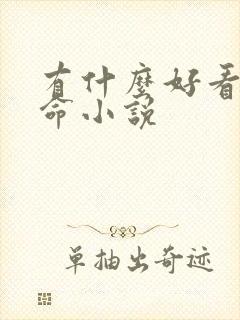 有什麼好看
命小說
單抽出奇迹